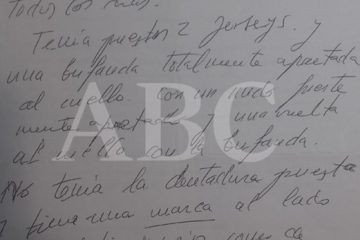 Todos los
Tenia puestos 2 jerseys. y
una bufanda totalmente apretada
al cuello. con un nudo fuerte
mente apretado y una vuelta
al cuello con la bufanda.
No tenia la dentadura puesta
y tiene una marca al lado
ABC